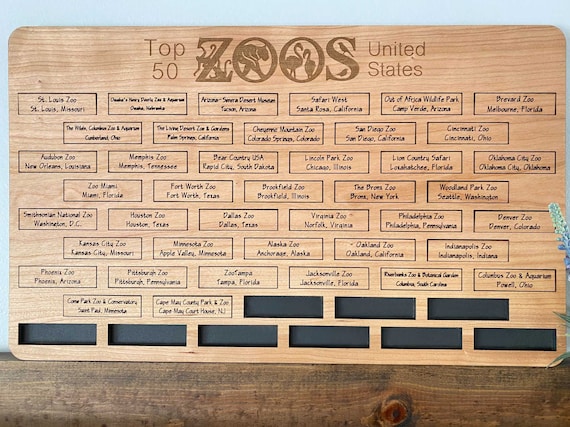 Top 50 ZOOS United States
St. Louis Zoo
St. Louis, Missouri
Omaha's Henry Doorly Zoo & Aquarium
Omaha, Nebraska
Arizona-Sonora Desert Museum
Tucson, Arizona
Safari West
Santa Rosa, California
Out of Africa Wildlife Park
Camp Verde, Arizona
Brevard Zoo
Melbourne, Florida
The Wilds, Columbus Zoo & Aquarium
Cumberland, Ohio
The Living Desert Zoo & Gardens
Palm Springs, California
Cheyenne Mountain Zoo
Colorado Springs, Colorado
San Diego Zoo
San Diego, California
Cincinnati Zoo
Cincinnati, Ohio
Audubon Zoo
New Orleans, Louisiana
Memphis Zoo
Memphis, Tennessee
Bear Country USA
Rapid City, South Dakota
Lincoln Park Zoo
Chicago, Illinois
Lion Country Safari
Loxahatchee, Florida
Oklahoma City Zoo
Oklahoma City, Oklahoma
Zoo Miami
Miami, Florida
Fort Worth Zoo
Fort Worth, Texas
Brookfield Zoo
Brookfield, Illinois
The Bronx Zoo
Bronx, New York
Woodland Park Zoo
Seattle, Washington
Smithsonian National Zoo
Washington, D.C.
Houston Zoo
Houston, Texas
Dallas Zoo
Dallas, Texas
Virginia Zoo
Norfolk, Virginia
Philadelphia Zoo
Philadelphia, Pennsylvania
Denver Zoo
Denver, Colorado
Kansas City Zoo
Kansas City, Missouri
Minnesota Zoo
Apple Valley, Minnesota
Alaska Zoo
Anchorage, Alaska
Oakland Zoo
Oakland, California
Indianapolis Zoo
Indianapolis, Indiana
Phoenix Zoo
Phoenix, Arizona
Pittsburgh Zoo
Pittsburgh, Pennsylvania
ZooTampa
Tampa, Florida
Jacksonville Zoo
Jacksonville, Florida
Riverbanks Zoo & Botanical Garden
Columbia, South Carolina
Columbus Zoo & Aquarium
Powell, Ohio
Como Park Zoo & Conservatory
Saint Paul, Minnesota
Cape May County Park & Zoo
Cape May Court House, NJ